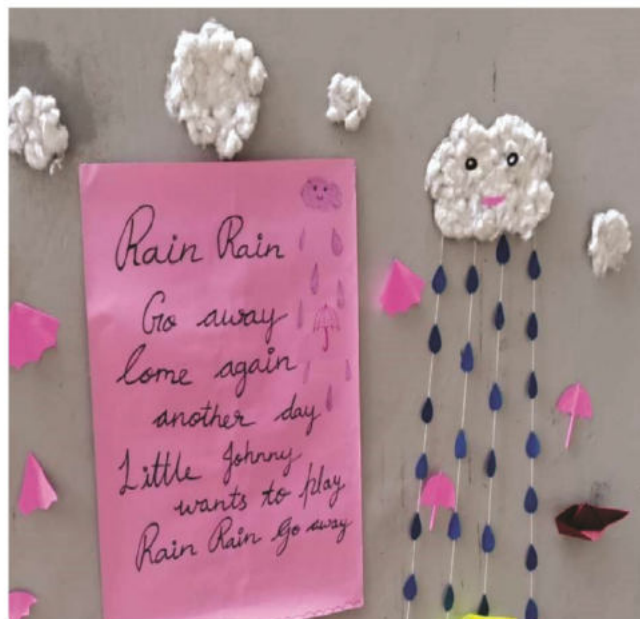 Rain Rain
Go away
Come again
another day
Little Johnny
wants to play
Rain Rain Go away